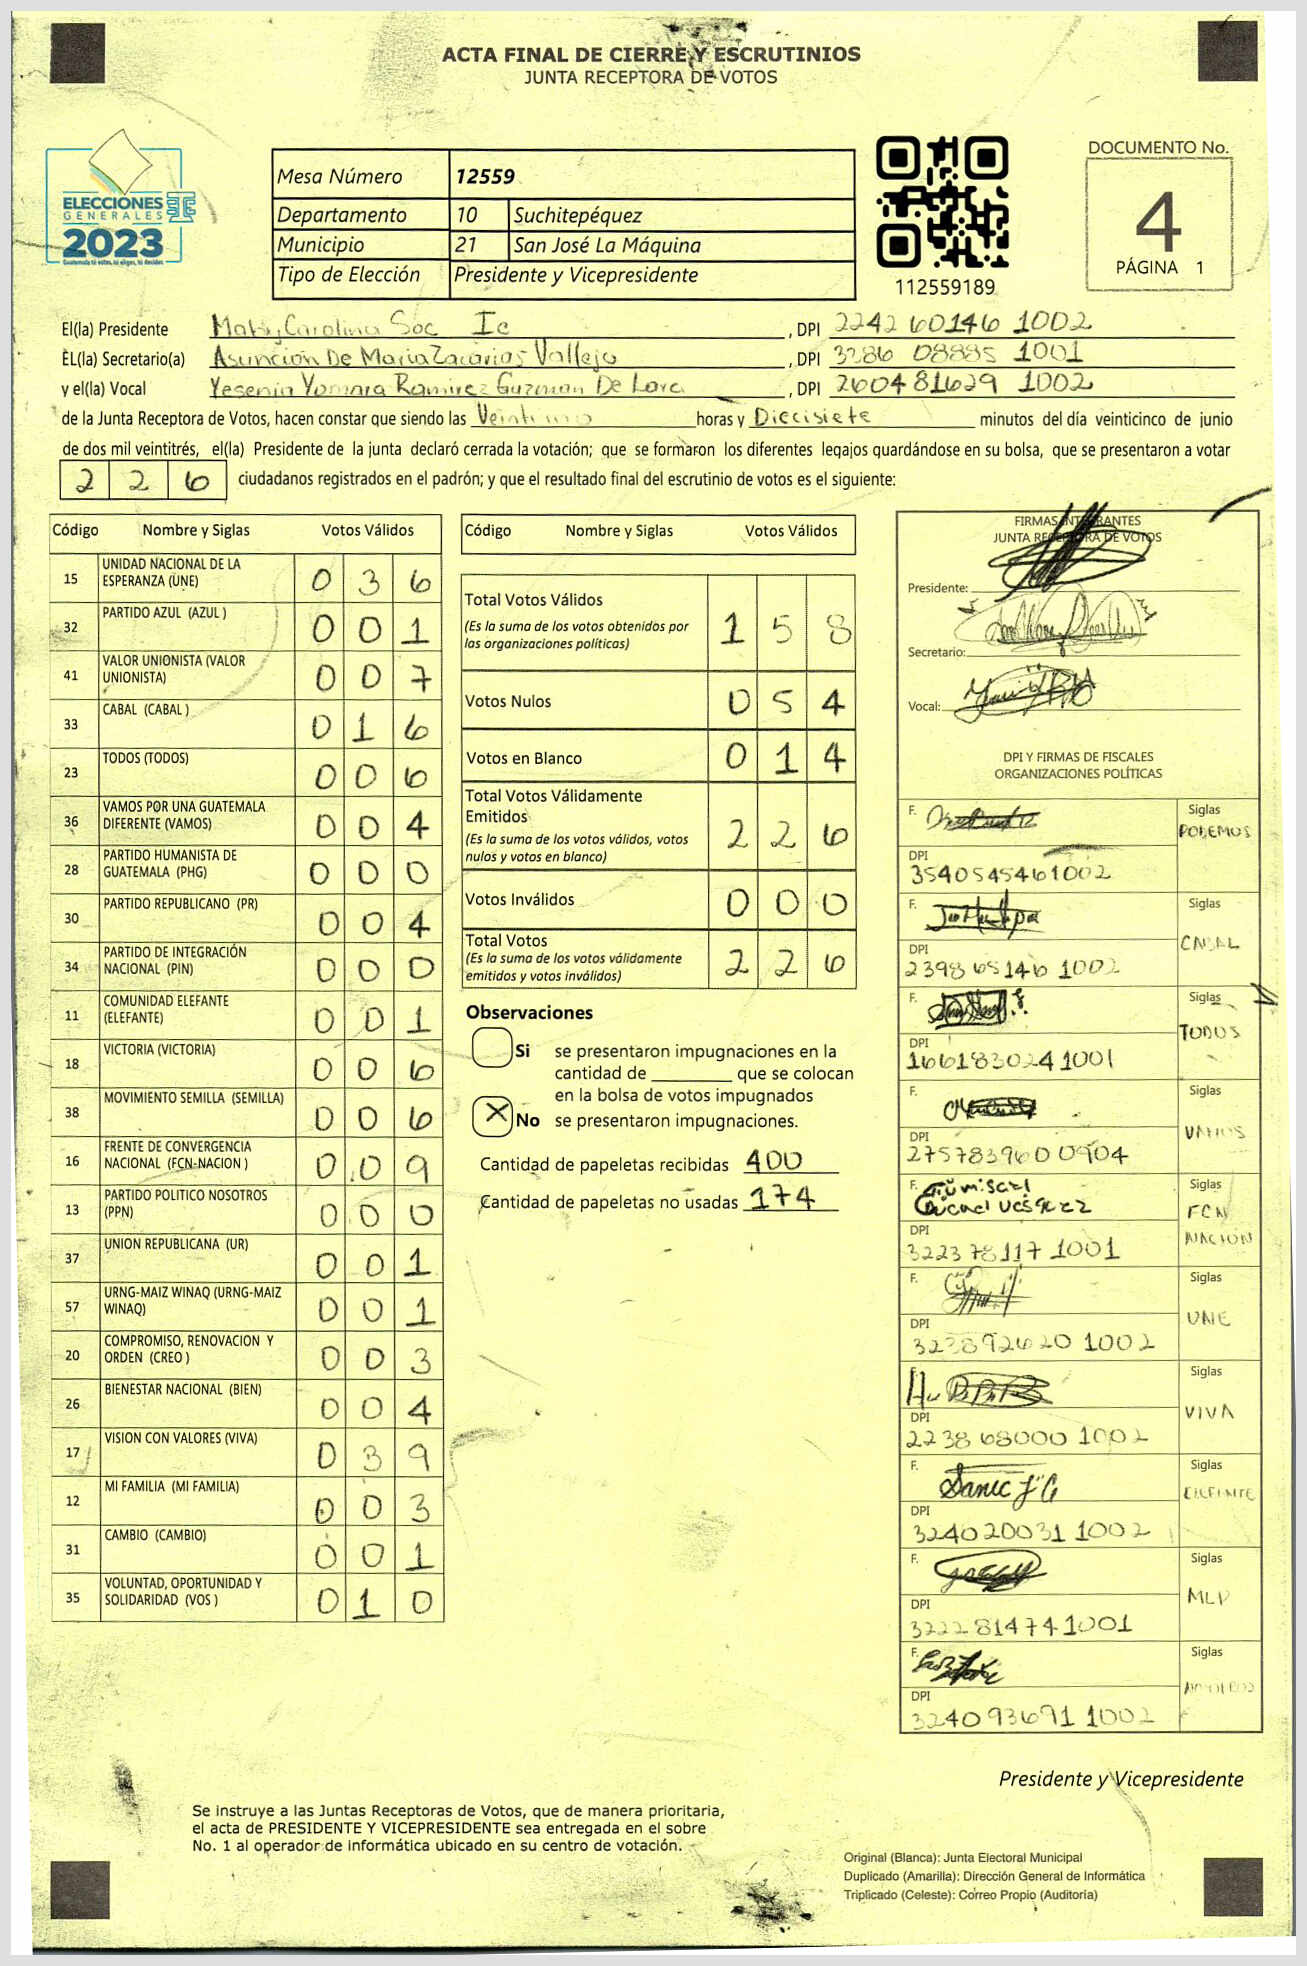 ACTA FINAL DE CIERRE Y ESCRUTINIOS
JUNTA RECEPTORA DE VOTOS
ELECCIONES
GENERALES
2023
Guatemala tú votas, tú eliges, tú decides
Mesa Número 12559
Departamento 10 Suchitepéquez
Municipio 21 San José La Máquina
Tipo de Elección Presidente y Vicepresidente
112559189
DOCUMENTO No.
4
PÁGINA 1
El(la) Presidente Carolina Soc Ic, DPI 2242 60146 1002
ÉL(la) Secretario(a) Asunción De Maria Zacarias Vallejo, DPI 3286 08885 1001
y el(la) Vocal Yesenia Yomara Ramirez Guzman De Lara, DPI 2604 81629 1002
de la Junta Receptora de Votos, hacen constar que siendo las Veintiuno horas y Diecisiete minutos del día veinticinco de junio
de dos mil veintitrés, el(la) Presidente de la junta declaró cerrada la votación; que se formaron los diferentes legajos guardándose en su bolsa, que se presentaron a votar
2 2 6 ciudadanos registrados en el padrón; y que el resultado final del escrutinio de votos es el siguiente:
Código Nombre y Siglas Votos Válidos
15 UNIDAD NACIONAL DE LA ESPERANZA (UNE) 0 3 6
32 PARTIDO AZUL (AZUL ) 0 0 1
41 VALOR UNIONISTA (VALOR UNIONISTA) 0 0 7
33 CABAL (CABAL ) 0 1 6
23 TODOS (TODOS) 0 0 6
36 VAMOS POR UNA GUATEMALA DIFERENTE (VAMOS) 0 0 4
28 PARTIDO HUMANISTA DE GUATEMALA (PHG) 0 0 0
30 PARTIDO REPUBLICANO (PR) 0 0 4
34 PARTIDO DE INTEGRACIÓN NACIONAL (PIN) 0 0 0
11 COMUNIDAD ELEFANTE (ELEFANTE) 0 0 1
18 VICTORIA (VICTORIA) 0 0 6
38 MOVIMIENTO SEMILLA (SEMILLA) 0 0 6
16 FRENTE DE CONVERGENCIA NACIONAL (FCN-NACION ) 0 0 9
13 PARTIDO POLITICO NOSOTROS (PPN) 0 0 0
37 UNION REPUBLICANA (UR) 0 0 1
57 URNG-MAIZ WINAQ (URNG-MAIZ WINAQ) 0 0 1
20 COMPROMISO, RENOVACION Y ORDEN (CREO ) 0 0 3
26 BIENESTAR NACIONAL (BIEN) 0 0 4
17 VISION CON VALORES (VIVA) 0 3 9
12 MI FAMILIA (MI FAMILIA) 0 0 3
31 CAMBIO (CAMBIO) 0 0 1
35 VOLUNTAD, OPORTUNIDAD Y SOLIDARIDAD (VOS ) 0 1 0
Código Nombre y Siglas Votos Válidos
Total Votos Válidos 1 5 8
(Es la suma de los votos obtenidos por
las organizaciones políticas)
Votos Nulos 0 5 4
Votos en Blanco 0 1 4
Total Votos Válidamente
Emitidos 2 2 6
(Es la suma de los votos válidos, votos
nulos y votos en blanco)
Votos Inválidos 0 0 0
Total Votos 2 2 6
(Es la suma de los votos válidamente
emitidos y votos inválidos)
Observaciones
Si se presentaron impugnaciones en la
cantidad de ________ que se colocan
en la bolsa de votos impugnados
X No se presentaron impugnaciones.
Cantidad de papeletas recibidas 400
Cantidad de papeletas no usadas 174
FIRMAS INTEGRANTES
JUNTA RECEPTORA DE VOTOS
Presidente:
Secretario:
Vocal:
DPI Y FIRMAS DE FISCALES
ORGANIZACIONES POLÍTICAS
F. Siglas PODEMOS
DPI 3540545461002
F. Siglas CABAL
DPI 2398 65146 1002
F. Siglas TODOS
DPI 1661830241001
F. Siglas VAMOS
DPI 2757839600904
F. Siglas FCN NACION
DPI 3223 78117 1001
F. Siglas UNE
DPI 3238926201002
F. Siglas VIVA
DPI 2238 68000 1002
F. Siglas ELEFANTE
DPI 324020031 1002
F. Siglas MLP
DPI 3222814741001
F. Siglas
DPI 3240936911002
Presidente y Vicepresidente
Se instruye a las Juntas Receptoras de Votos, que de manera prioritaria,
el acta de PRESIDENTE Y VICEPRESIDENTE sea entregada en el sobre
No. 1 al operador de informática ubicado en su centro de votación.
Original (Blanca): Junta Electoral Municipal
Duplicado (Amarilla): Dirección General de Informática
Triplicado (Celeste): Correo Propio (Auditoría)